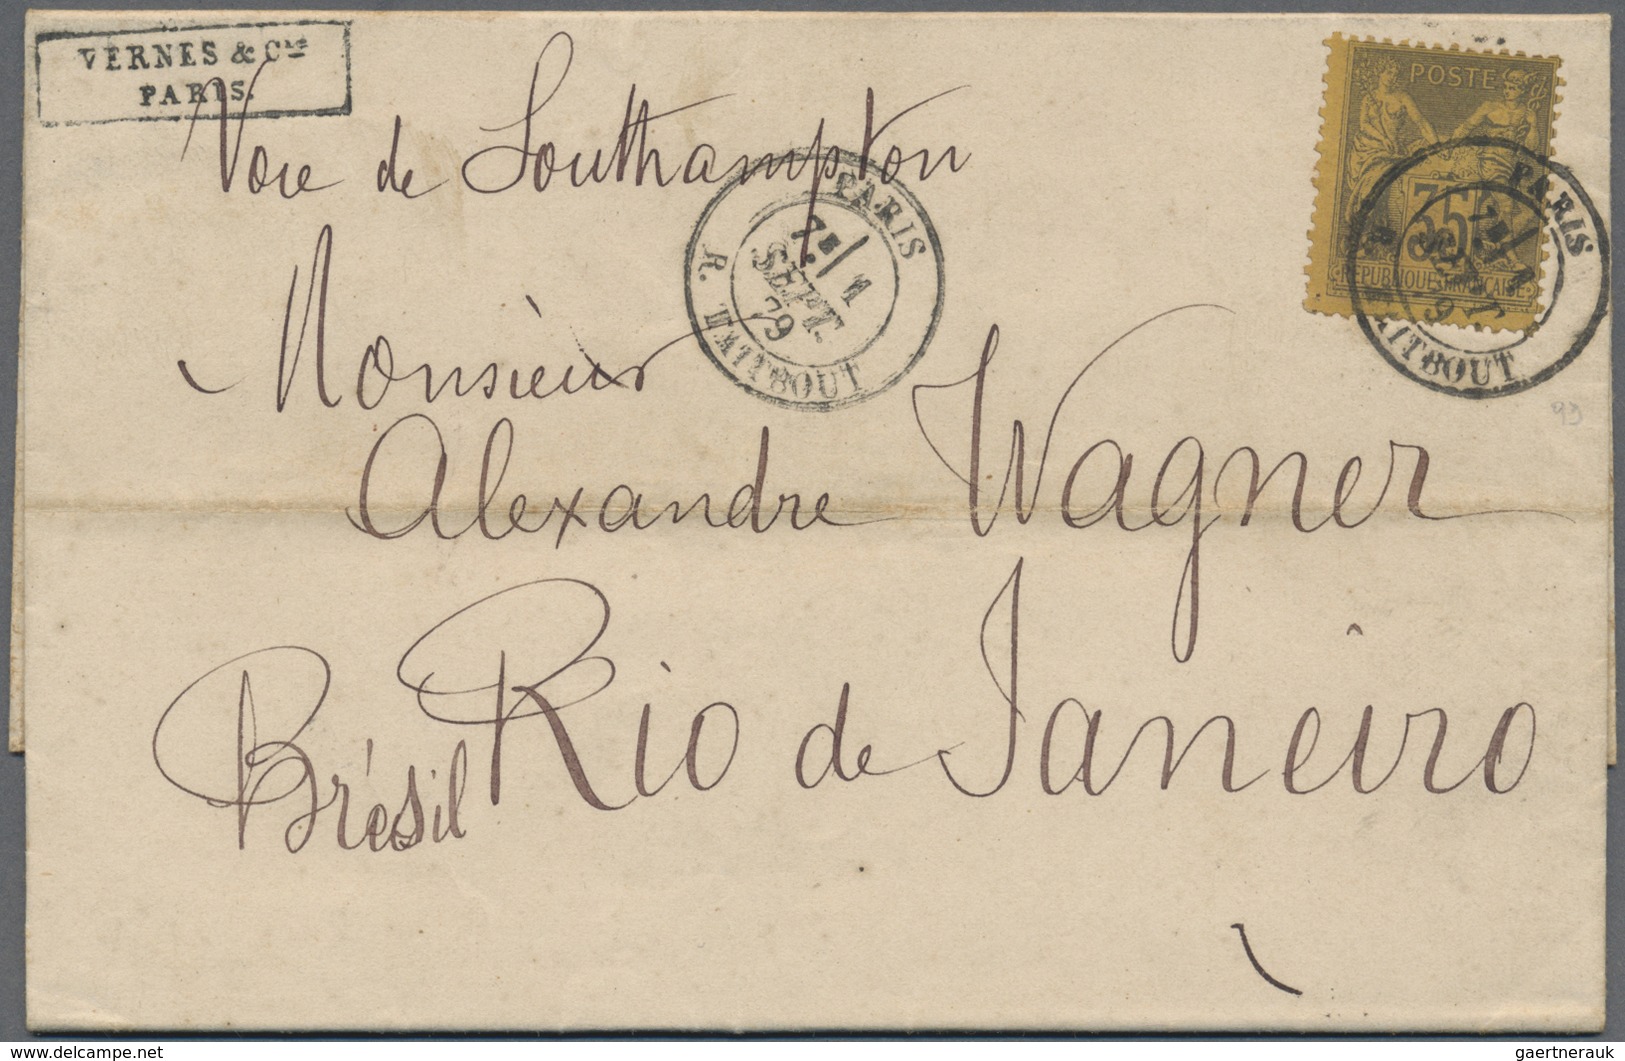 VERNES & Cie
PARIS.
Voie de Southampton
PARIS
7E/ 1
SEPT.
79
R. TAITBOUT
POSTE
35
REPUBLIQUE FRANCAISE
PARIS
7E/ 1
R. TAITBOUT
93
Monsieur
Alexandre Wagner
Rio de Janeiro
Brésil
delcampe.net
gaertnerauk